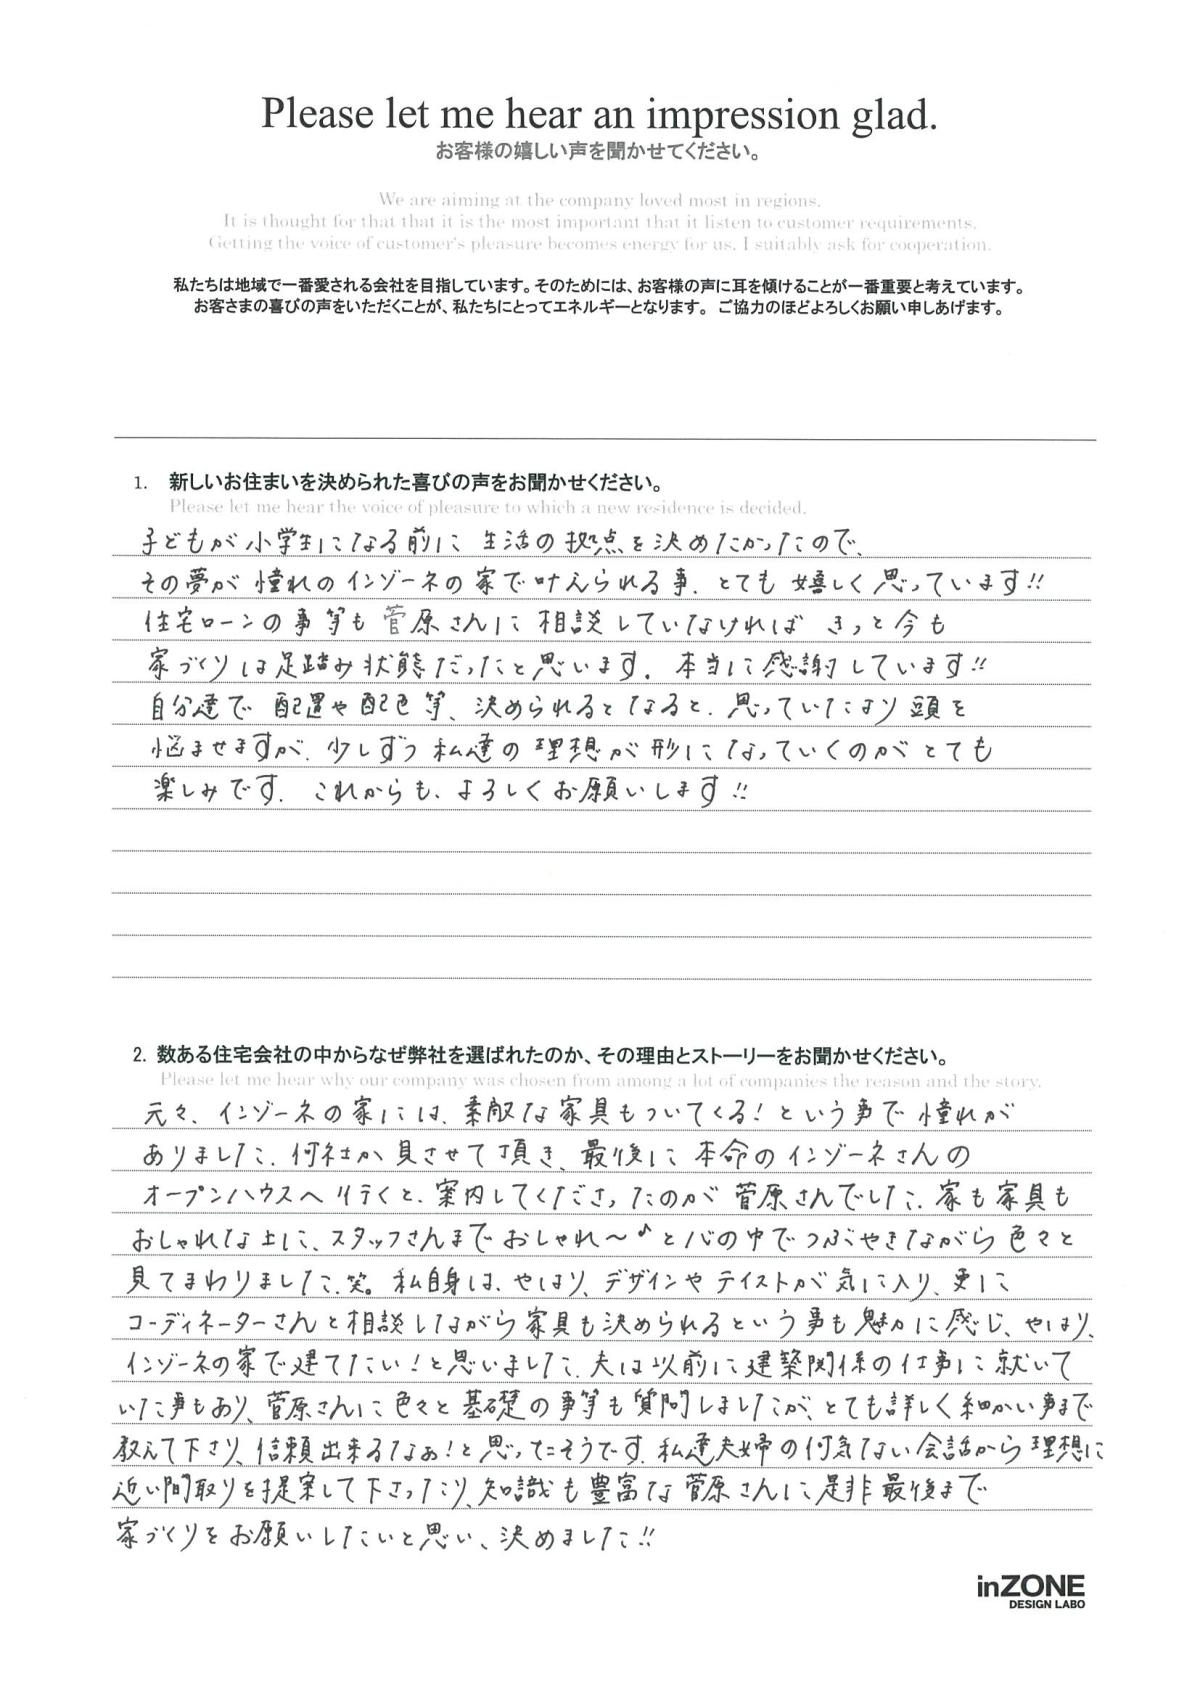 Please let me hear an impression glad.
お客様の嬉しい声を聞かせてください。
We are aiming at the company loved most in regions.
It is thought for that that it is the most important that it listen to customer requirements.
Getting the voice of customer's pleasure becomes energy for us. I suitably ask for cooperation.
私たちは地域で一番愛される会社を目指しています。そのためには、お客様の声に耳を傾けることが一番重要と考えています。
お客さまの喜びの声をいただくことが、私たちにとってエネルギーとなります。 ご協力のほどよろしくお願い申しあげます。
1. 新しいお住まいを決められた喜びの声をお聞かせください。
Please let me hear the voice of pleasure to which a new residence is decided.
子どもが小学生になる前に 生活の拠点を決めたかったので、
その夢が 憧れのインゾーネの家で叶えられる事、とても嬉しく思っています!!
住宅ローンの事等も菅原さんに相談していなければ きっと今も
家づくりは足踏み状態だったと思います。本当に感謝しています!!
自分達で 配置や配色等、決められるとなると、思っていたより頭を
悩ませますが、少しずつ私達の理想が形になっていくのがとても
楽しみです。これからも、よろしくお願いします!!
2. 数ある住宅会社の中からなぜ弊社を選ばれたのか、その理由とストーリーをお聞かせください。
Please let me hear why our company was chosen from among a lot of companies the reason and the story.
元々、インゾーネの家には、素敵な家具もついてくる!という事で憧れが
ありました。何社か見させて頂き、最後に本命のインゾーネさんの
オープンハウスへ行くと、案内してくださったのが菅原さんでした。家も家具も
おしゃれな上に、スタッフさんまでおしゃれ〜♪と心の中でつぶやきながら色々と
見てまわりました。笑。私自身は、やはり、デザインやテイストが気に入り、更に
コーディネーターさんと相談しながら家具も決められるという事も魅力に感じ、やはり、
インゾーネの家で建てたい!と思いました。夫は以前に建築関係の仕事に就いて
いた事もあり、菅原さんに色々と基礎の事等も質問しましたが、とても詳しく細かい事まで
教えて下さり、信頼出来るなぁ!と思ったそうです。私達夫婦の何気ない会話から理想に
近い間取りを提案して下さったり、知識も豊富な菅原さんに是非最後まで
家づくりをお願いしたいと思い、決めました!!
inZONE
DESIGN LABO